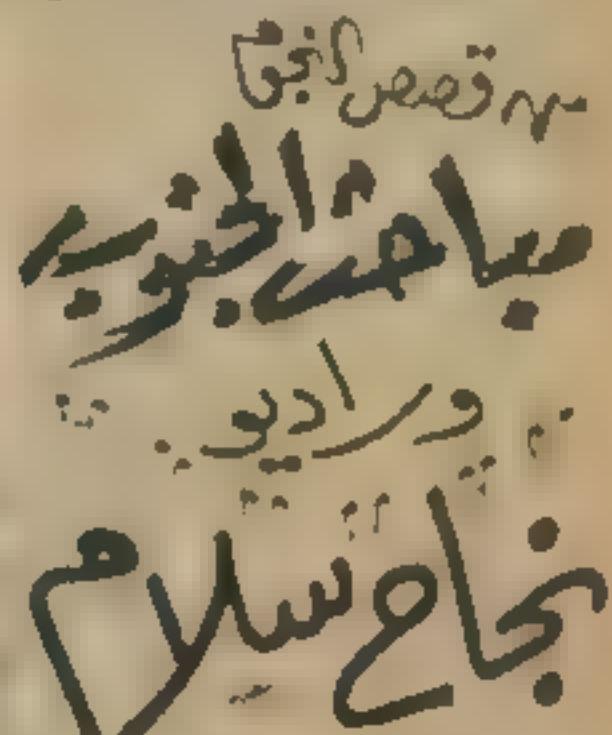 من قصص النجوم
مباحث الجنوب
وراديو
نجاح سلام